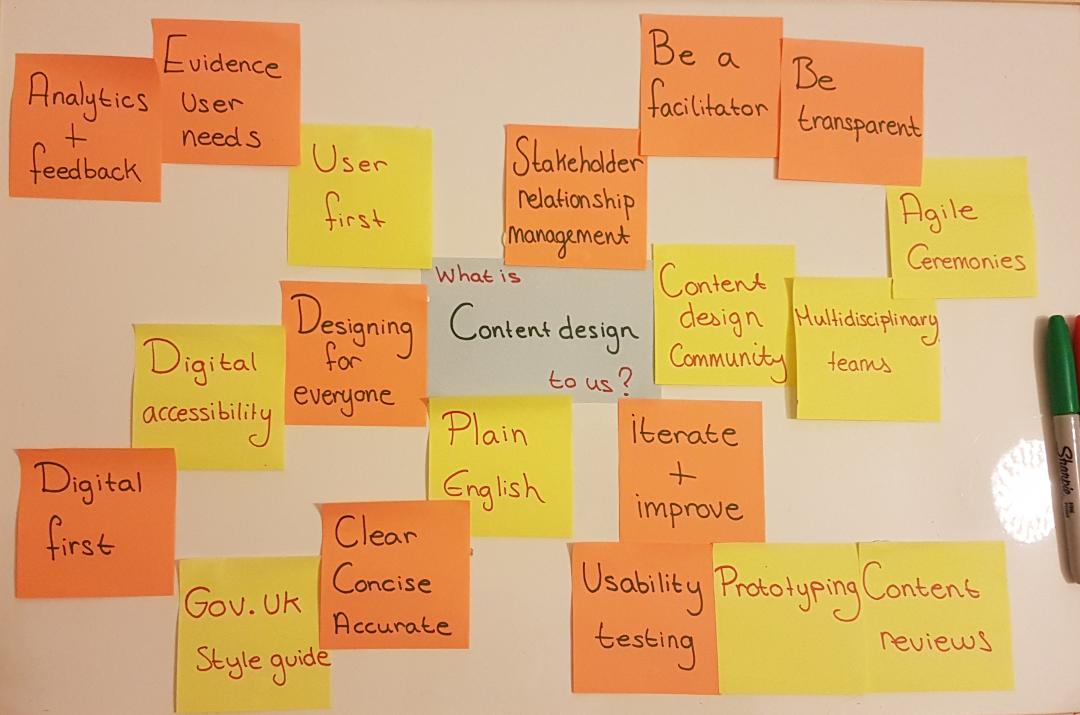 Analytics
+
feedback
Evidence
user
needs
User
first
Stakeholder
relationship
management
Be a
facilitator
Be
transparent
Agile
Ceremonies
What is
Content design
to us?
Content
design
Community
Multidisciplinary
teams
Designing
for
everyone
Digital
accessibility
Digital
first
Plain
English
Clear
Concise
Accurate
Gov.uk
Style guide
iterate
+
improve
Usability
testing
Prototyping
Content
reviews
Sharpie